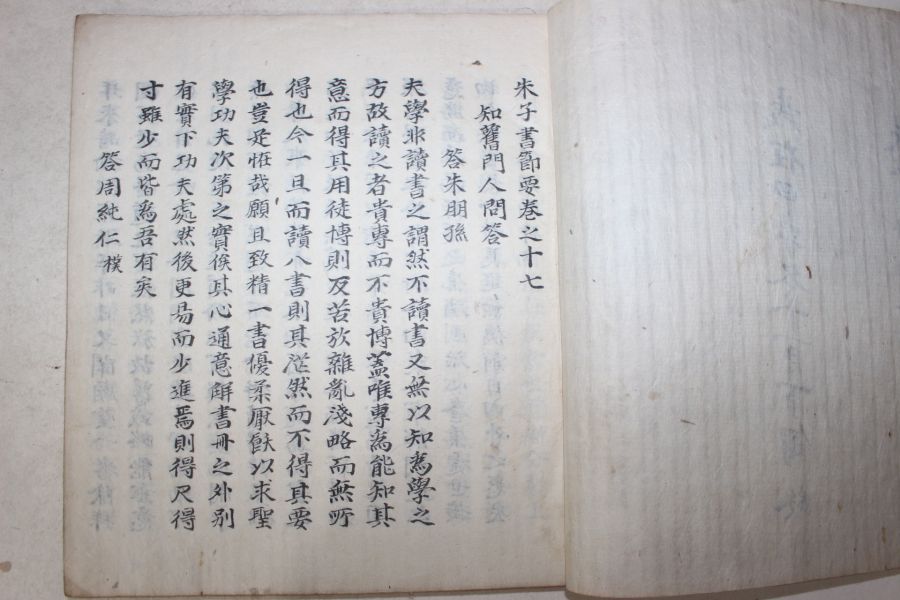 朱子書節要卷之十七
知舊門人問答
答朱朋孫
夫學非讀書之謂然不讀書又無以知為學之
方故讀之者貴專而不貴博蓋唯專為能知其
意而得其用徒博則反苦於雜亂淺略而無所
得也今一旦而讀八書則其茫然而不得其要
也豈足恠哉願且致精一書優柔厭飫以求聖
學功夫次第之實俟其心通意解書冊之外別
有實下功夫處然後更易而少進焉則得尺得
寸雖少而皆為吾有矣
答周純仁 樸